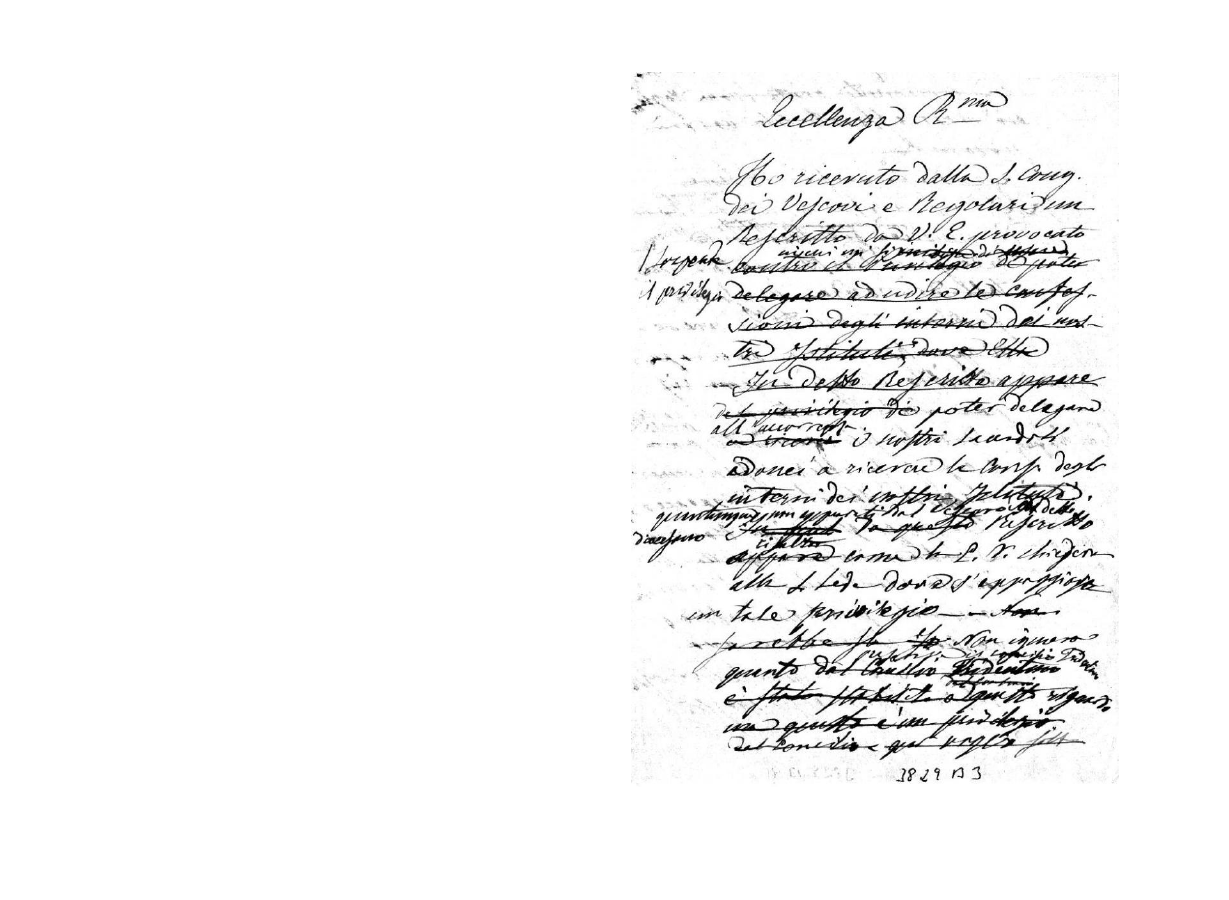 Eccellenza Rma
Ho ricevuto dalla S. Cong.
dei Vescovi e Regolari un
Rescritto da V. E. provocato
contro il Privilegio di poter
il privilegio
delegare ad udire le confes-
sioni degli interni dei nos-
tri Istituti, dove Ella
In detto Rescritto appare
del privilegio di poter delegare
i nostri Sacerdoti
idonei a ricevere le Conf. degli
interni dei nostri Istituti.
quantunque non approvati dal Vescovo
diocesano
Da questo Rescritto
appare come la E. V. chiedeva
alla S. Sede dove s'appoggiasse
un tale privilegio
sarebbe Non ignoro
quanto dal Concilio Tridentino
è stato stabilito a questo riguardo
ma questo è un privilegio
dal Concilio e qui
3829 A 3